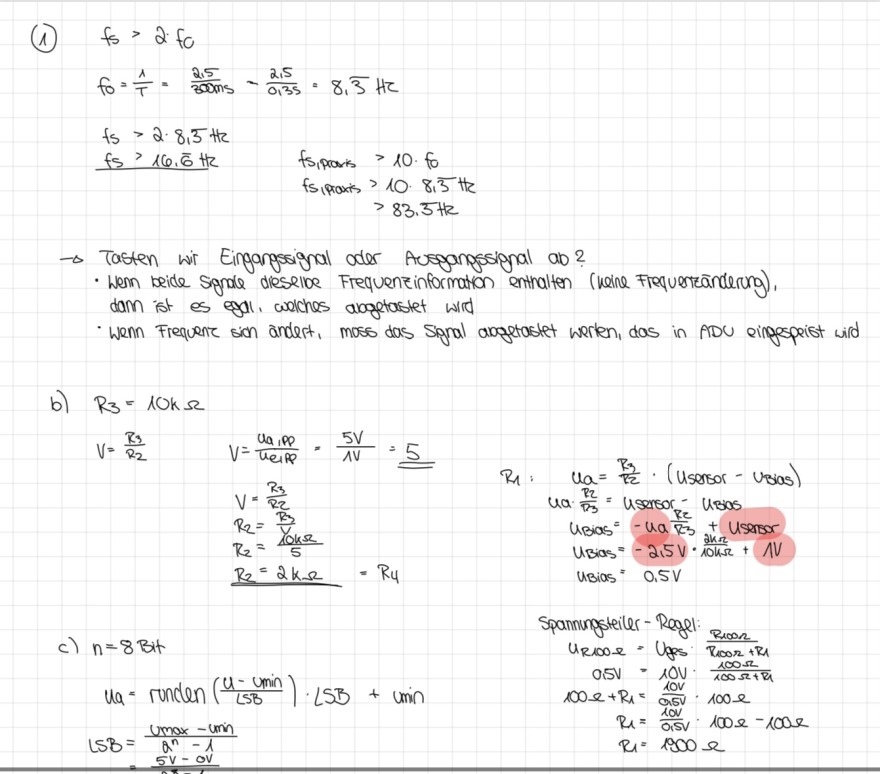 ① fs > 2·fo
fo = 1/T = 2,5/300ms = 2,5/0,3s = 8,3̅ Hz
fs > 2·8,3̅ Hz
fs > 16,6̅ Hz
fs,praxis > 10·fo
fs,praxis > 10·8,3̅ Hz
> 83,3̅ Hz
→ Tasten wir Eingangssignal oder Ausgangssignal ab?
· Wenn beide Signale dieselbe Frequenzinformation enthalten (keine Frequenzänderung),
dann ist es egal, welches abgetastet wird
· wenn Frequenz sich ändert, muss das Signal abgetastet werten, das in ADU eingespeist wird
b) R3 = 10kΩ
V = R3/R2
V = Ua,pp/Ue,pp = 5V/1V = 5
V = R3/R2
R2 = R3/V
R2 = 10kΩ/5
R2 = 2kΩ = R4
R1: Ua = R3/R2 · (Usensor - UBias)
Ua · R2/R3 = Usensor - UBias
UBias = -Ua R2/R3 + Usensor
UBias = -2,5V · 2kΩ/10kΩ + 1V
UBias = 0,5V
Spannungsteiler-Regel:
UR100Ω = Uges · R100Ω/(R100Ω + R1)
0,5V = 10V · 100Ω/(100Ω + R1)
100Ω + R1 = 10V/0,5V · 100Ω
R1 = 10V/0,5V · 100Ω - 100Ω
R1 = 1900 Ω
c) n = 8 Bit
Ua = runden ((U - Umin)/LSB) · LSB + Umin
LSB = (Umax - Umin)/(2ⁿ - 1)
= (5V - 0V)/